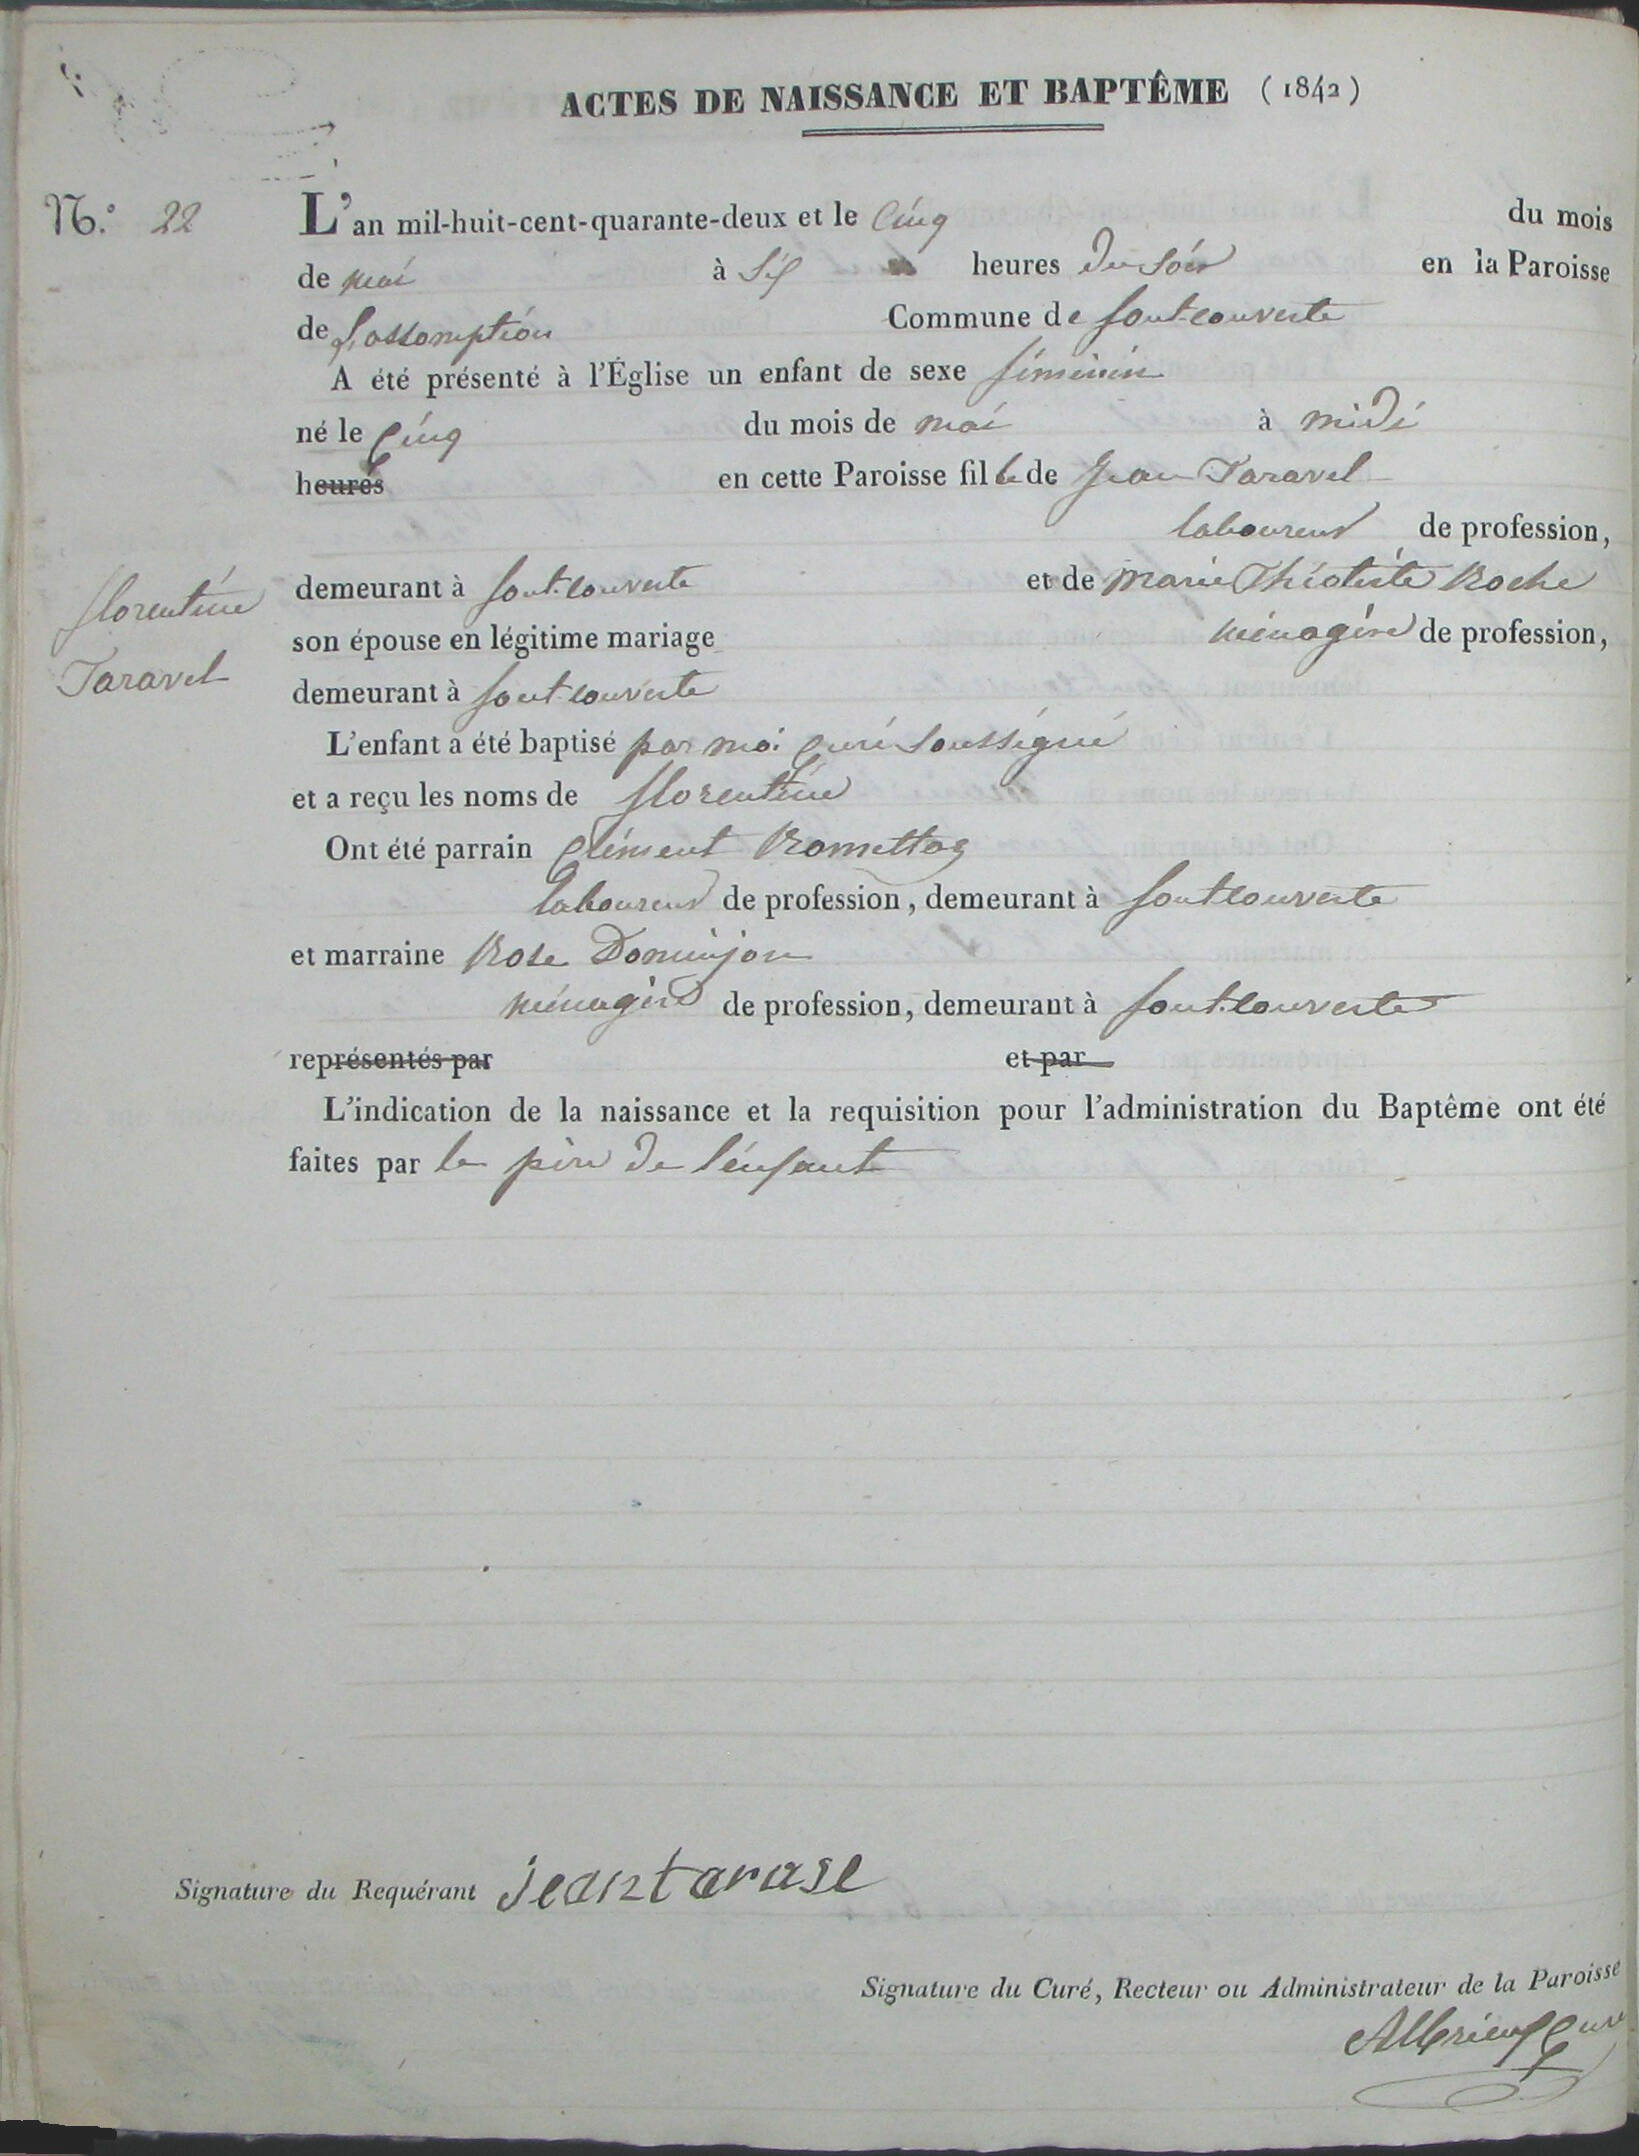 ACTES DE NAISSANCE ET BAPTÊME (1842)
N.° 22
L'an mil-huit-cent-quarante-deux et le Cinq du mois
de mai à Six heures du soir en la Paroisse
de L'assomption Commune de fontcouverte
A été présenté à l'Église un enfant de sexe féminin
né le Cinq du mois de mai à midi
heures en cette Paroisse fille de Jean Taravel
laboureur de profession,
florentine
Taravel
demeurant à font-couverte et de marie Théotiste Roche
son épouse en légitime mariage ménagère de profession,
demeurant à font-couverte
L'enfant a été baptisé par moi curé soussigné
et a reçu les noms de florentine
Ont été parrain Clément Romettaz
laboureur de profession, demeurant à fontcouverte
et marraine Rose Dominjon
ménagère de profession, demeurant à font-couverte
représentés par et par
L'indication de la naissance et la requisition pour l'administration du Baptême ont été
faites par le père de l'enfant
Signature du Requérant jean taravel
Signature du Curé, Recteur ou Administrateur de la Paroisse
Albrieux Curé